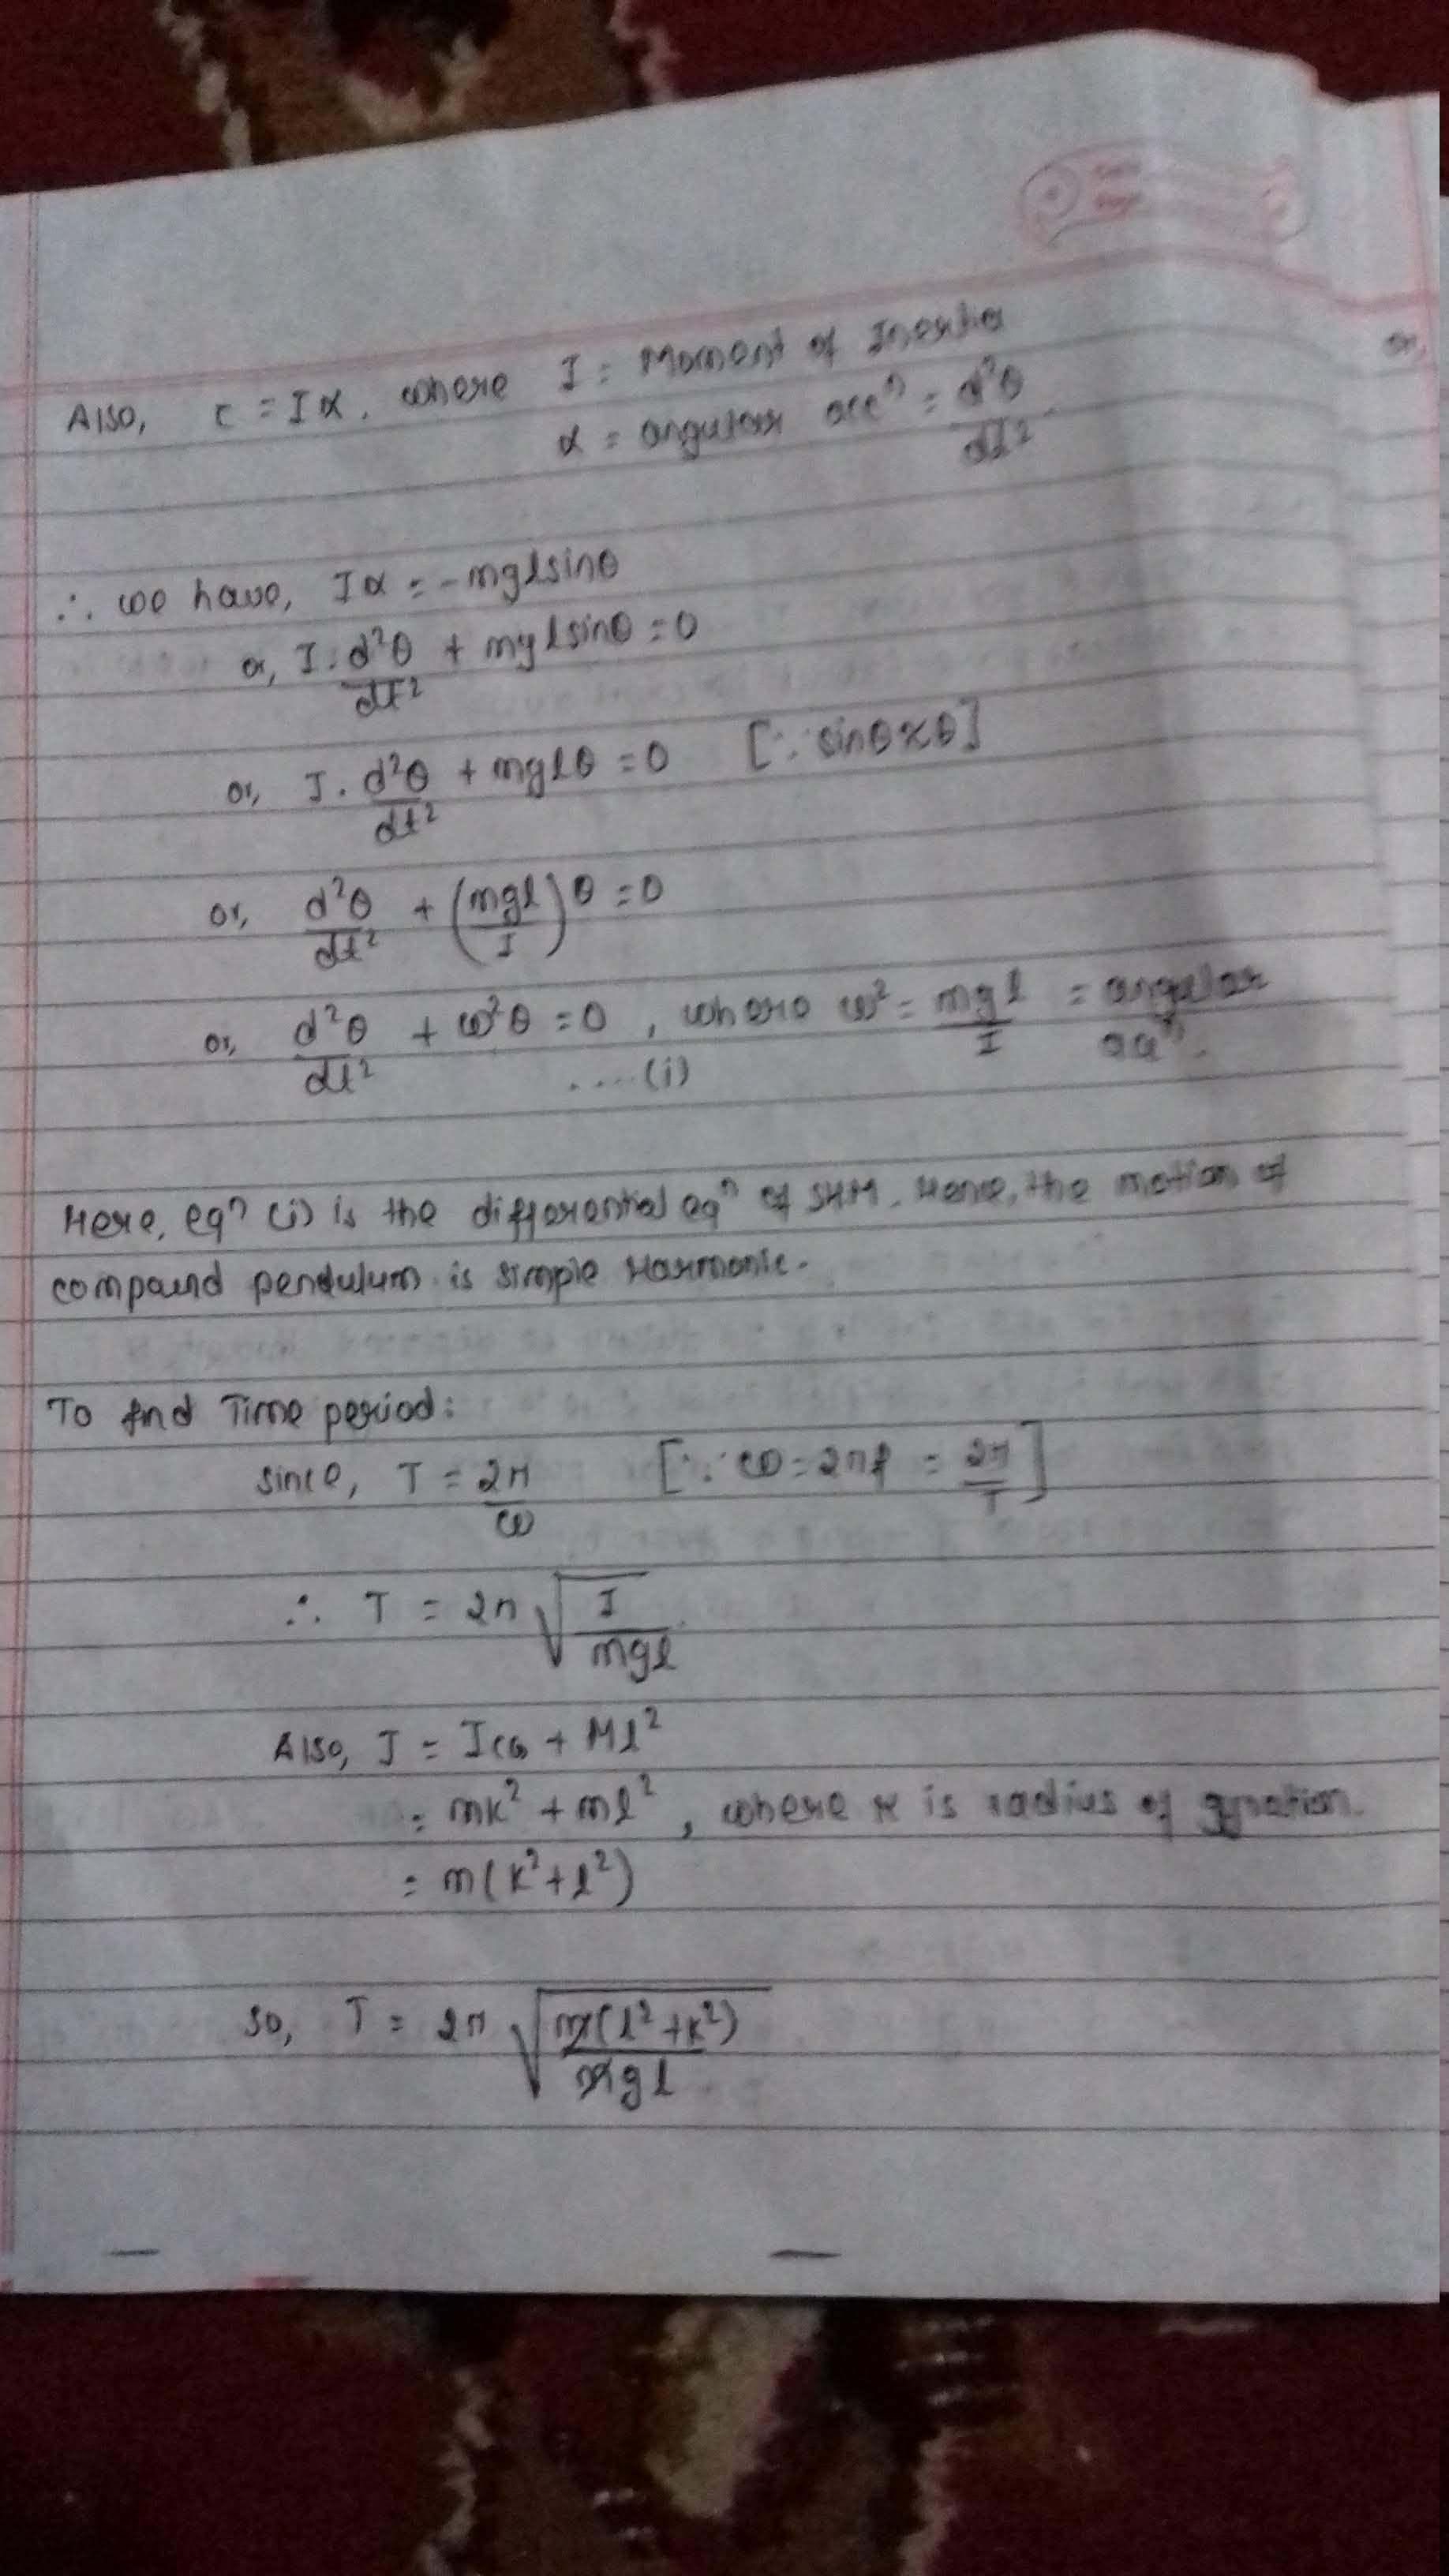 Also, τ = Iα, where I = Moment of Inertia
α = angular accⁿ = d²θ/dt²
∴ we have, Iα = -mglsinθ
or, I. d²θ/dt² + mglsinθ = 0
or, I. d²θ/dt² + mglθ = 0 [∵ sinθ≈θ]
or, d²θ/dt² + (mgl/I)θ = 0
or, d²θ/dt² + ω²θ = 0, where ω² = mgl/I = angular
....(i)
Here, eqⁿ (i) is the differential eqⁿ of SHM. Hence, the motion of
compound pendulum is simple Harmonic.
To find Time period:
since, T = 2π/ω [∵ ω = 2πf = 2π/T]
∴ T = 2π√(I/mgl)
Also, I = ICG + Ml²
= mk² + ml², where k is radius of gyration.
= m(k²+l²)
so, T = 2π√(m(l²+k²)/mgl)
or,